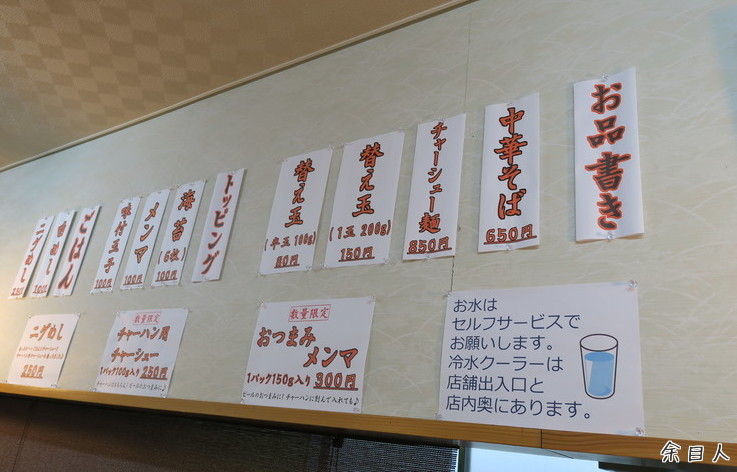 お品書き
中華そば
650円
チャーシュー麺
850円
替え玉
(1玉 200g)
150円
替え玉
(半玉 100g)
80円
トッピング
海苔
(6枚)
100円
メンマ
100円
味付玉子
100円
ごはん
白めし
ニグめし
お水は
セルフサービスで
お願いします。
冷水クーラーは
店舗出入口と
店内奥にあります。
数量限定
おつまみ
メンマ
1パック150g入り 300円
ビールのおつまみに!チャーハンに刻んで入れても♪
数量限定
チャーハン用
チャーシュー
1パック100g入り 250円
ニグめし
250円
余目人